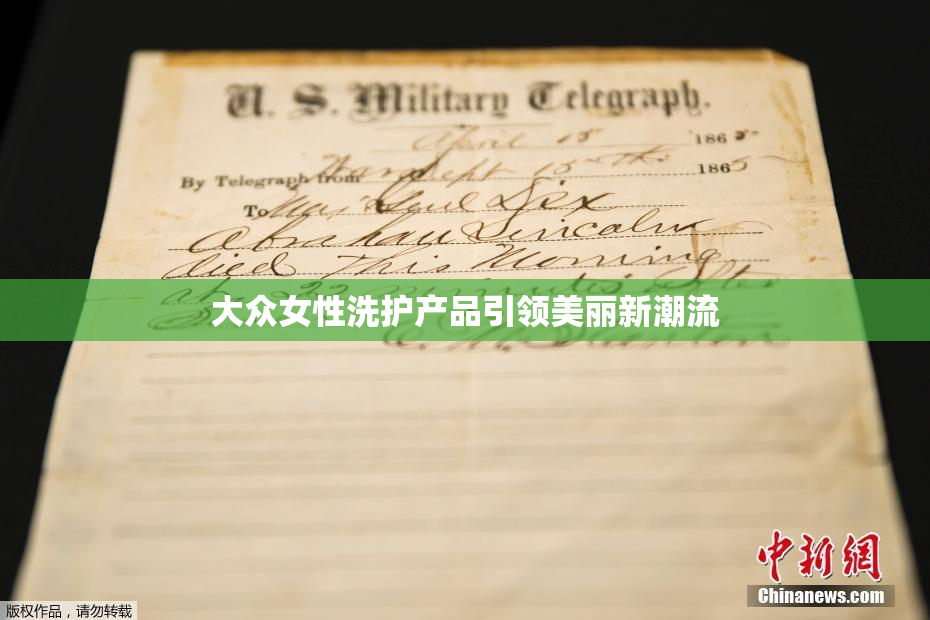 U. S. Military Telegraph.
April 15 1865
By Telegraph from War Dept 15th 1865
To Maj Genl Dix
Abraham Lincoln
died This Morning
at 22 minutes after
大众女性洗护产品引领美丽新潮流
E. M. Stanton
中新网
Chinanews.com
版权作品，请勿转载